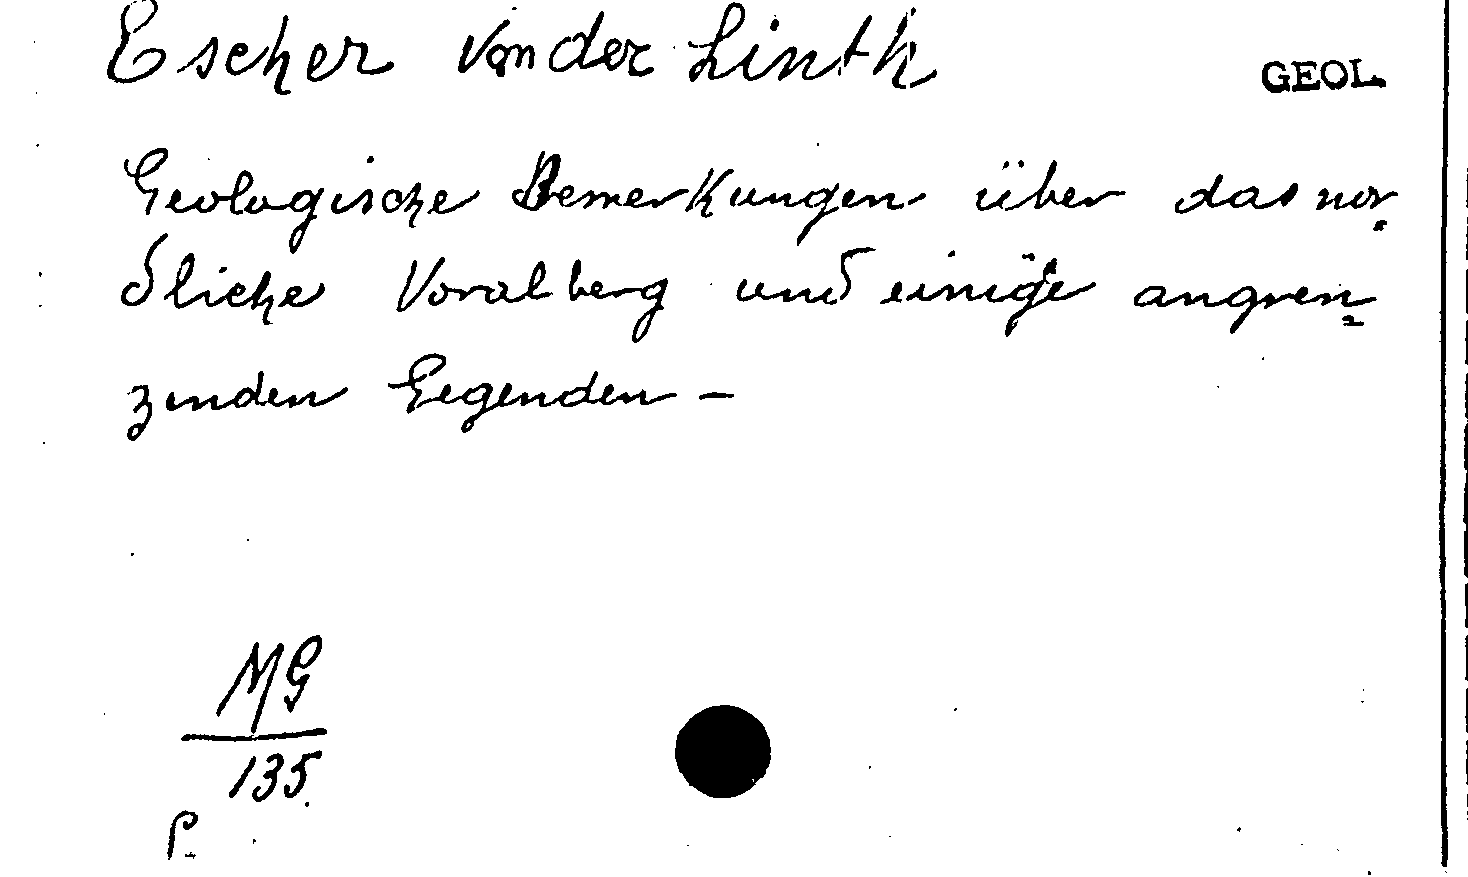 Escher von der Linth
GEOL.
Geologische Bemerkungen über das nor=
dliche Voralberg und einige angren=
zenden Gegenden —
MG
135.
P.